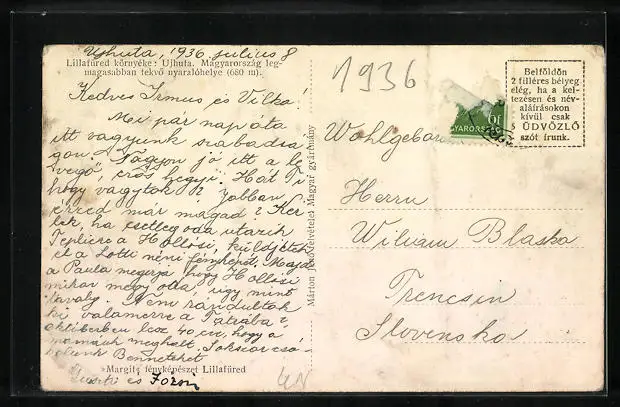 Ujhuta, 1936. július 8
Lillafüred környéke: Ujhuta. Magyarország leg-
magasabban tekvő nyaralóhelye (680 m).
Kedves Irmus és Vilka!
Mi pár nap óta
itt vagyunk szabadsá
gon. Nagyon jó itt a le
vegő, erős hegyi. Hát Ti
hogy vagytok? Jobban
érzed már magad? Kér
lek, ha esetleg oda utazik
Teplicre a Hollósi, küldjétek
el a Lotti néni fényképét. Majd
a Paula megírja hogy Hollósi
mikor megy oda, úgy mint
tavaly. Nem rándultok
ki valamerre a Tátrába?
októberben lesz 40 éve, hogy a
mamánk meghalt. Sokszor csó
kolunk Benneteket
és Józsi
»Margit« fényképészet Lillafüred
Márton jenő felvétele
Magyar gyártmány
1936
6f
GYARORSZÁG
Belföldön
2 filléres bélyeg
elég, ha a kel-
tezésen és név-
aláírásokon
kívül csak
5 ÜDVÖZLŐ
szót írunk.
Wohlgeboren
Herrn
Wiliam Blaska
Trencsin
Slovensko